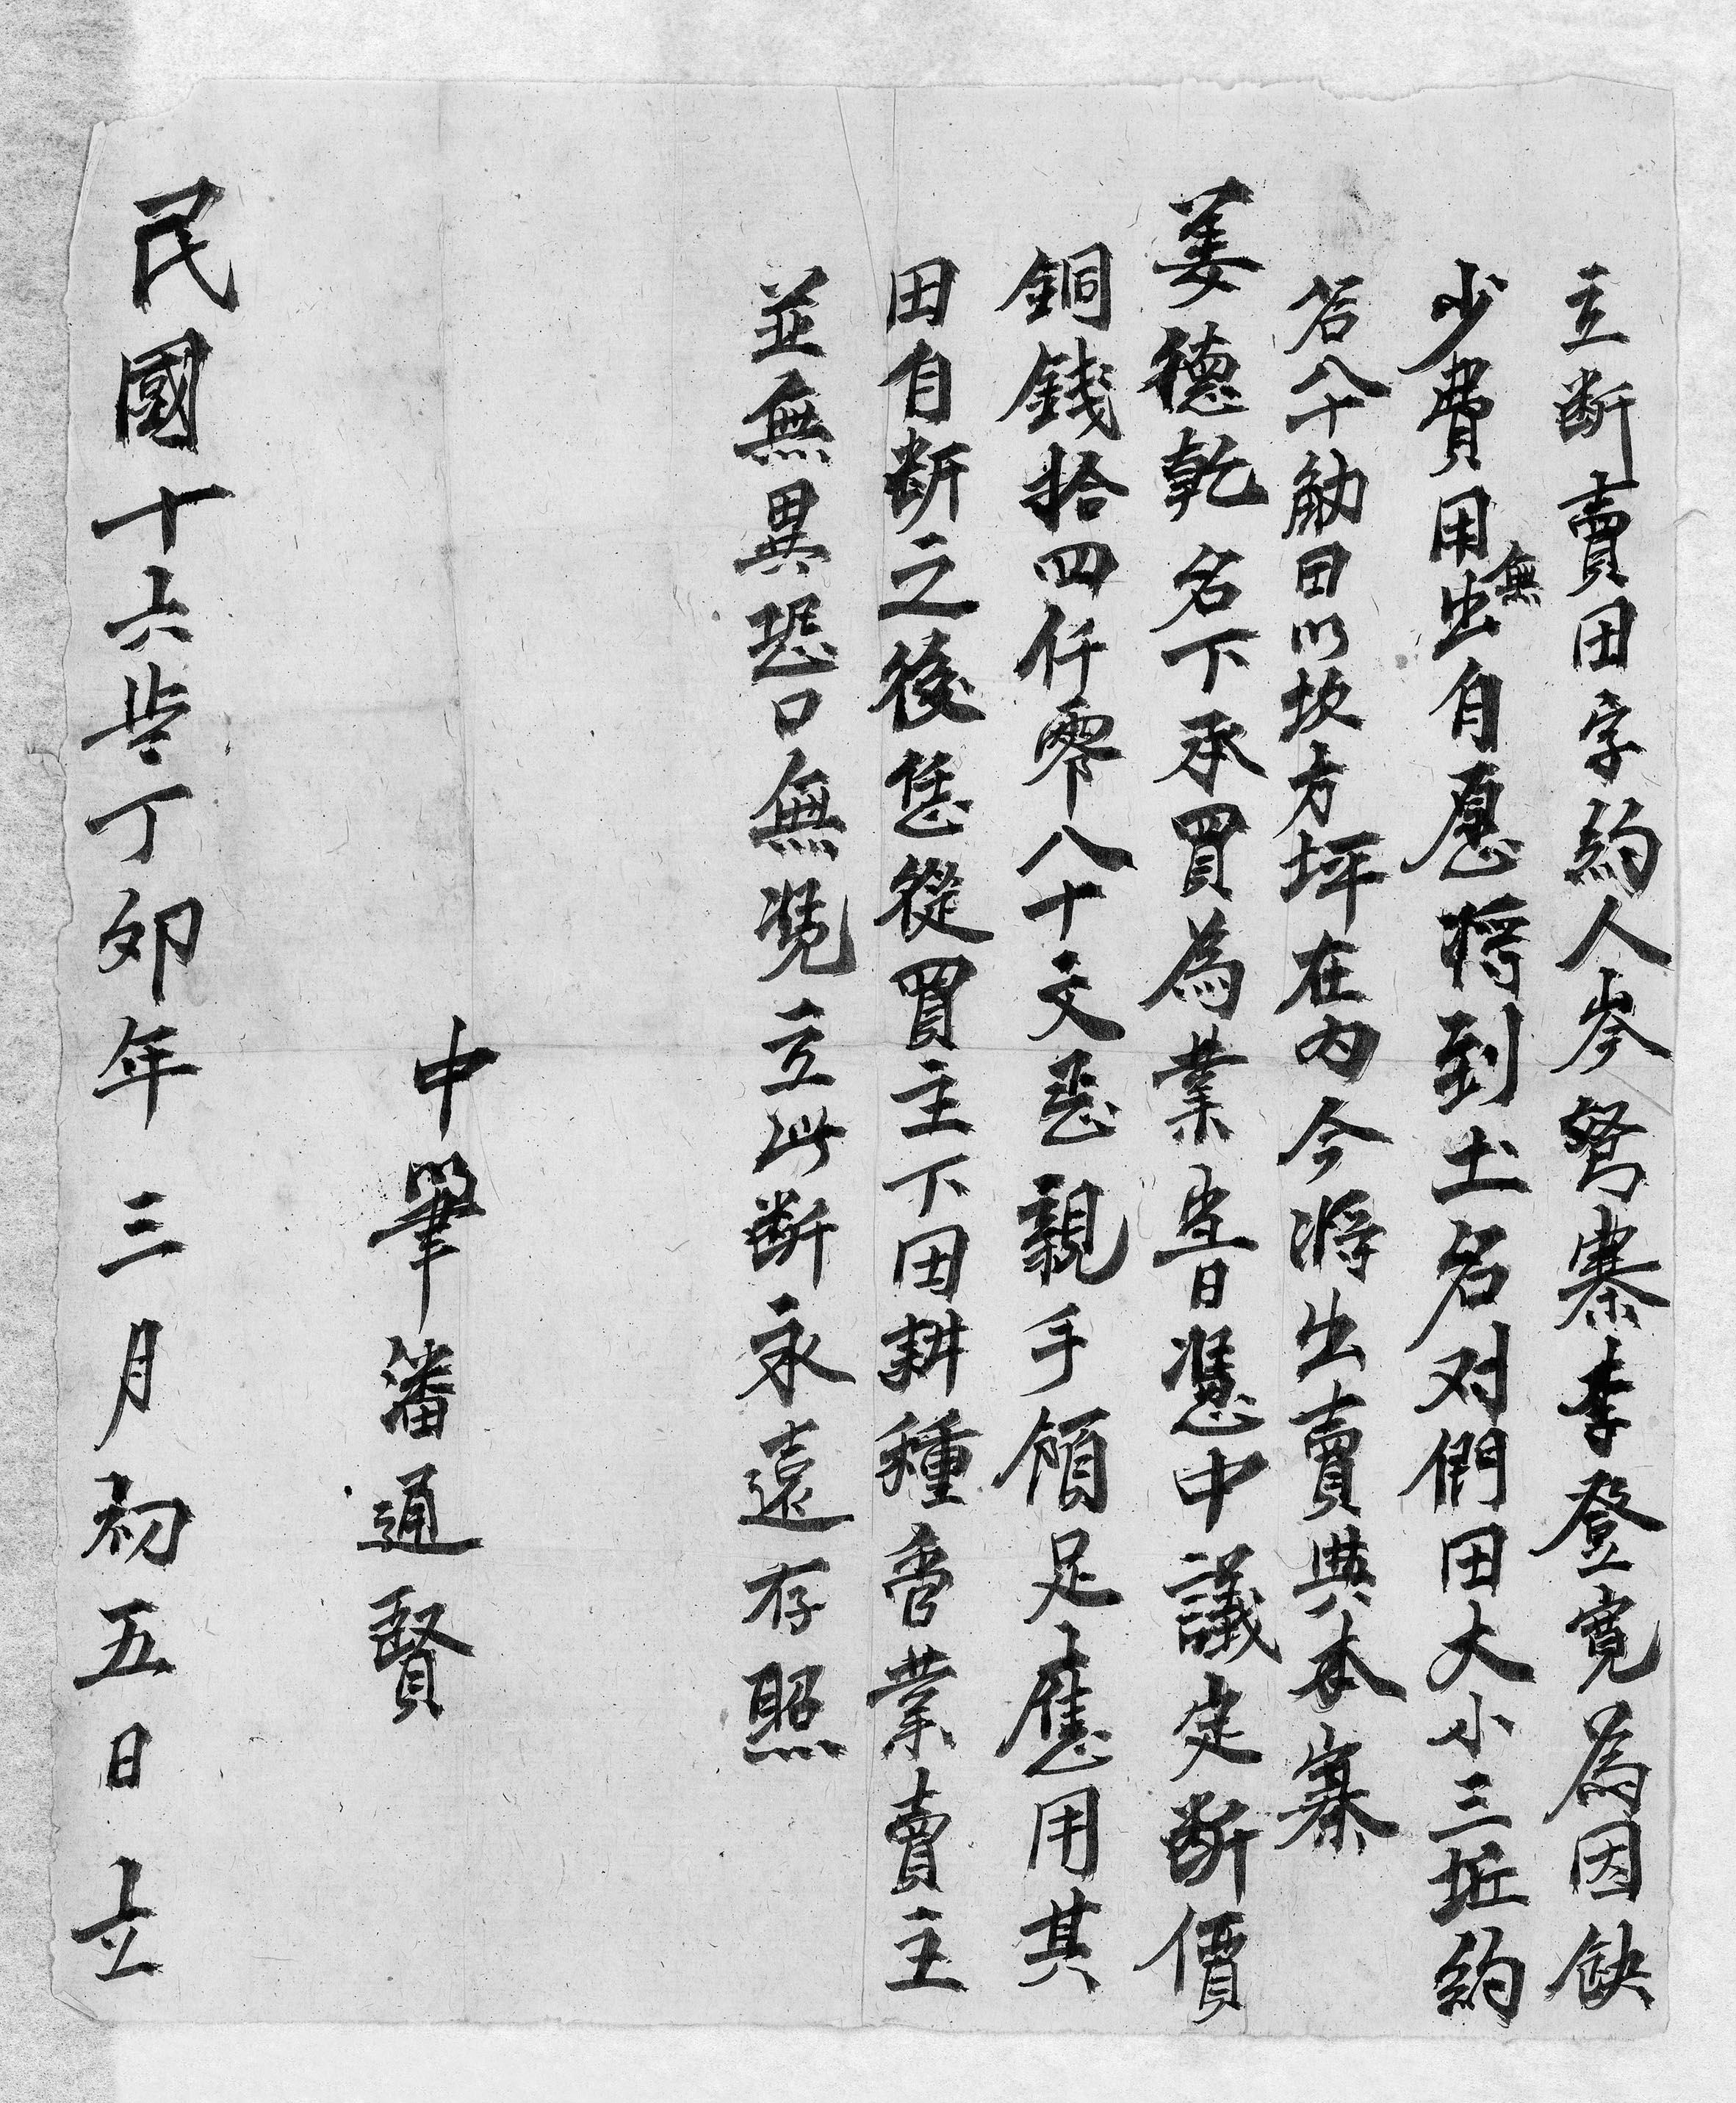 立断賣田字約人岑弩寨李登寛為因缺
少費用無出自愿将到土名对們田大小三坵約
谷八十觔田以坎方坪在内今將出賣與本寨
姜德乾名下承買為業當日憑中議定断價
銅錢拾四仟零八十文恶親手領足應用其
田自断之後恁從買主下田耕種管業賣主
並無異恐口無凴立此断永遠存照
中筆潘通賢
民國十六年丁卯年三月初五日立